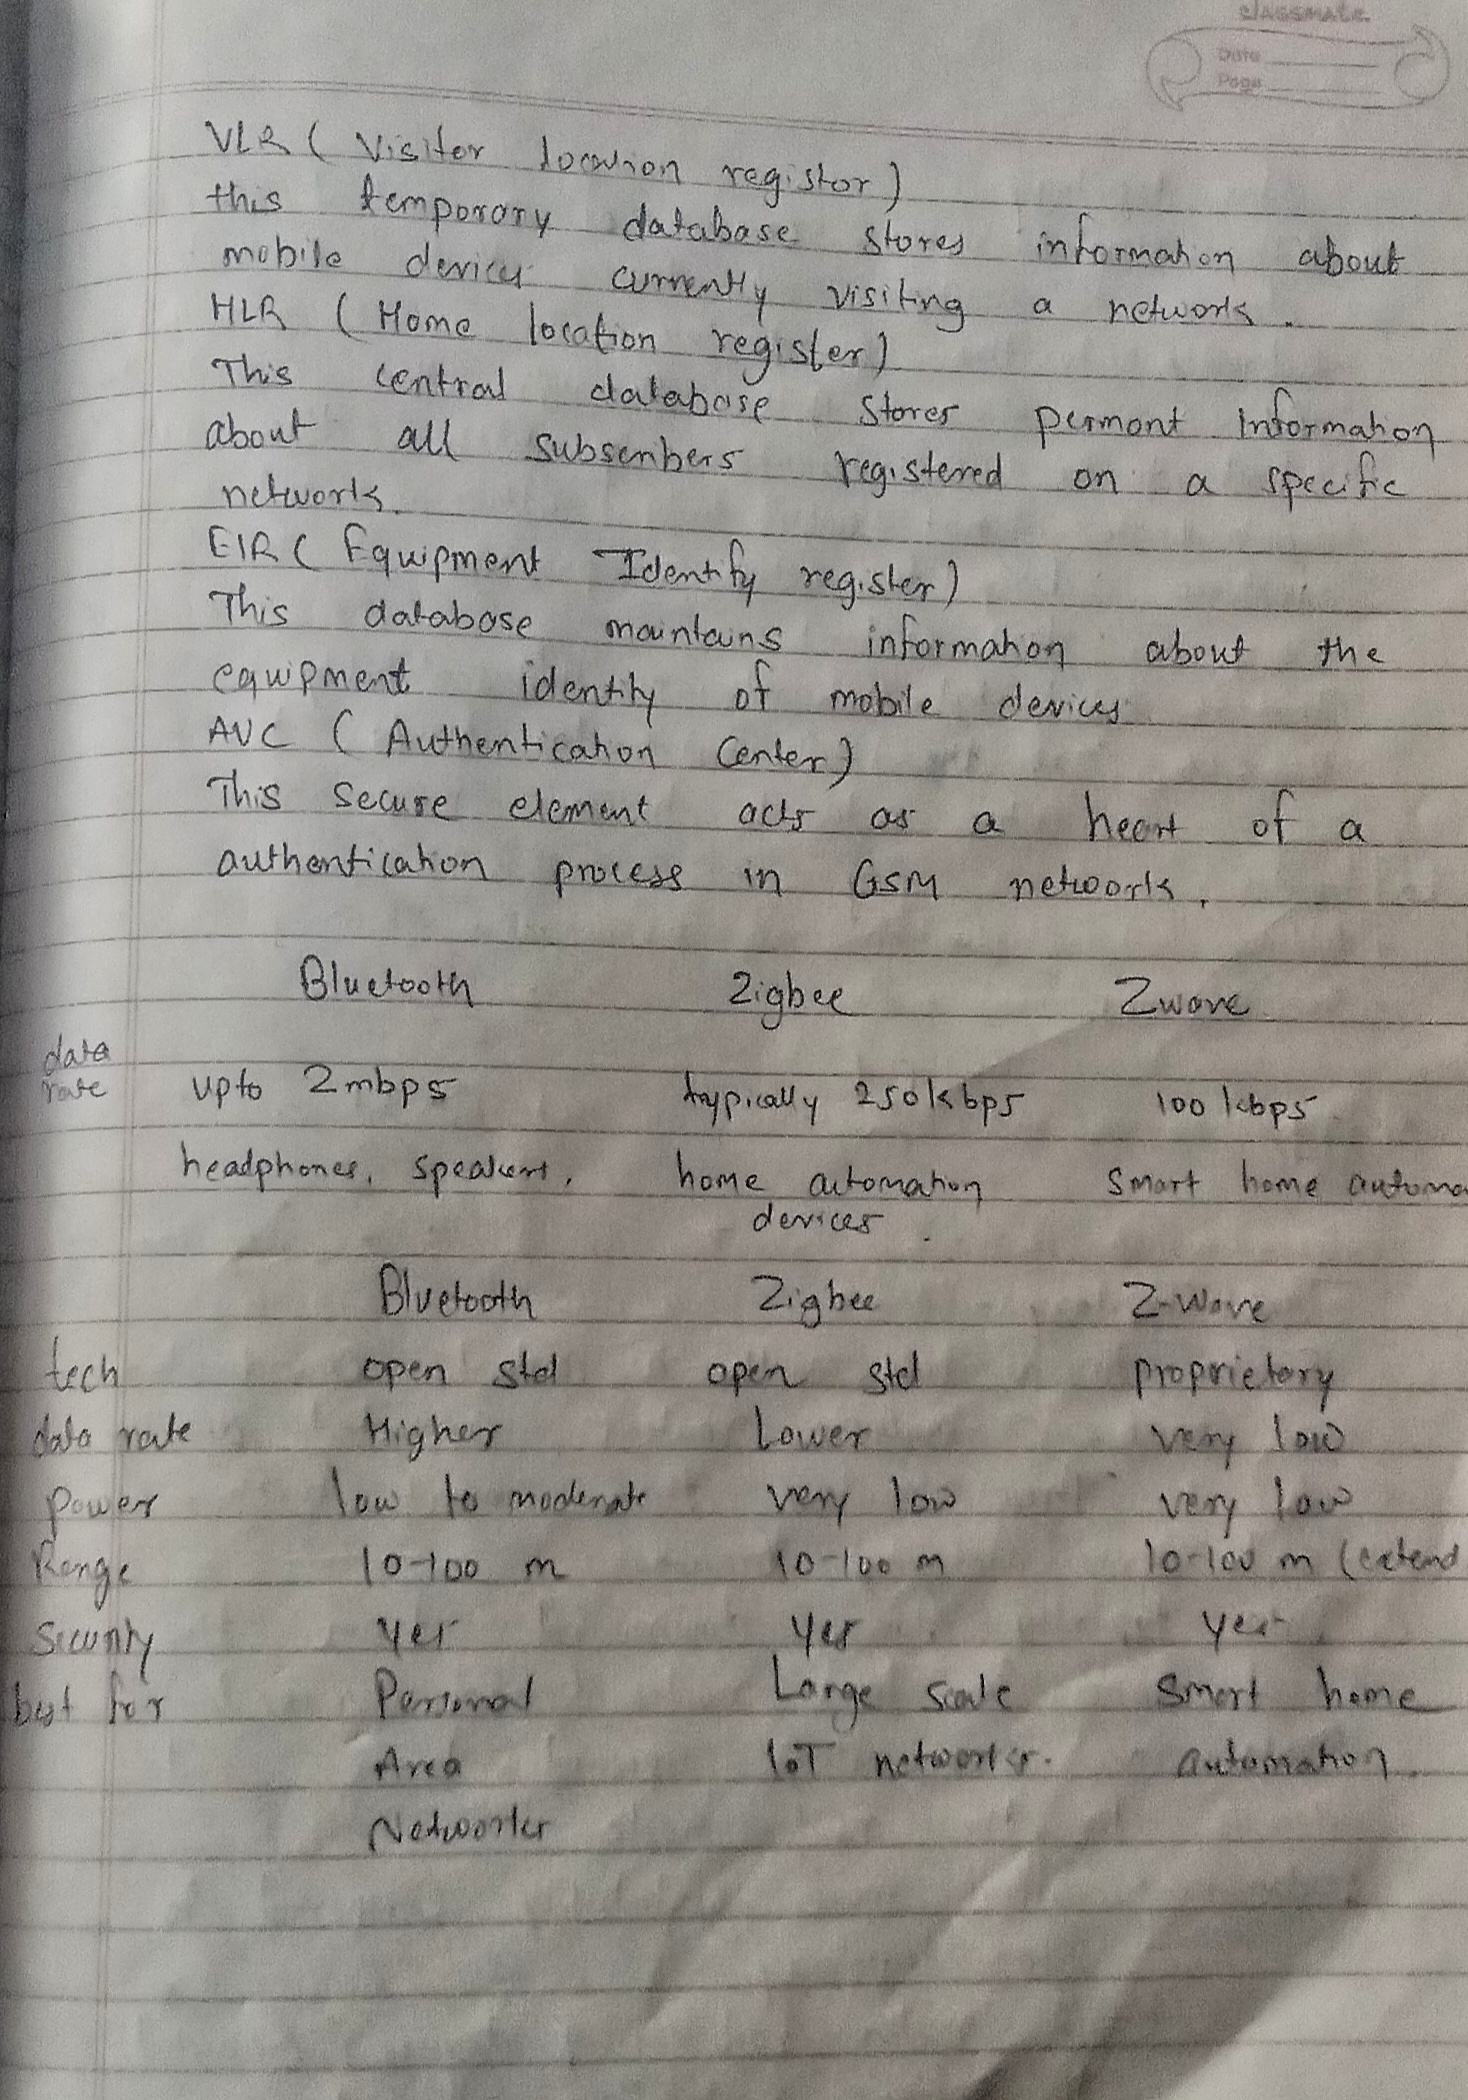 classmate
Date
Page
VLR ( Visitor location registor )
this temporary database stores information about
mobile devices currently visiting a network.
HLR ( Home location register )
This central database stores permont information
about all subscribers registered on a specific
network.
EIR ( Equipment Identity register )
This database maintains information about the
equipment identity of mobile devices
AUC ( Authentication Center )
This secure element acts as a heart of a
authentication process in GSM network.
Bluetooth Zigbee Zwave
data rate upto 2mbps typically 250kbps 100 kbps
headphones, speakers, home automation smart home automa
devices.
Bluetooth Zigbee Z-wave
tech open std open std proprietory
data rate Higher Lower very low
power low to moderate very low very low
Range 10-100 m 10-100 m 10-100 m (extend
Security yes yes yes
best for Personal Large scale Smart home
Area IoT networks. automation.
Networks